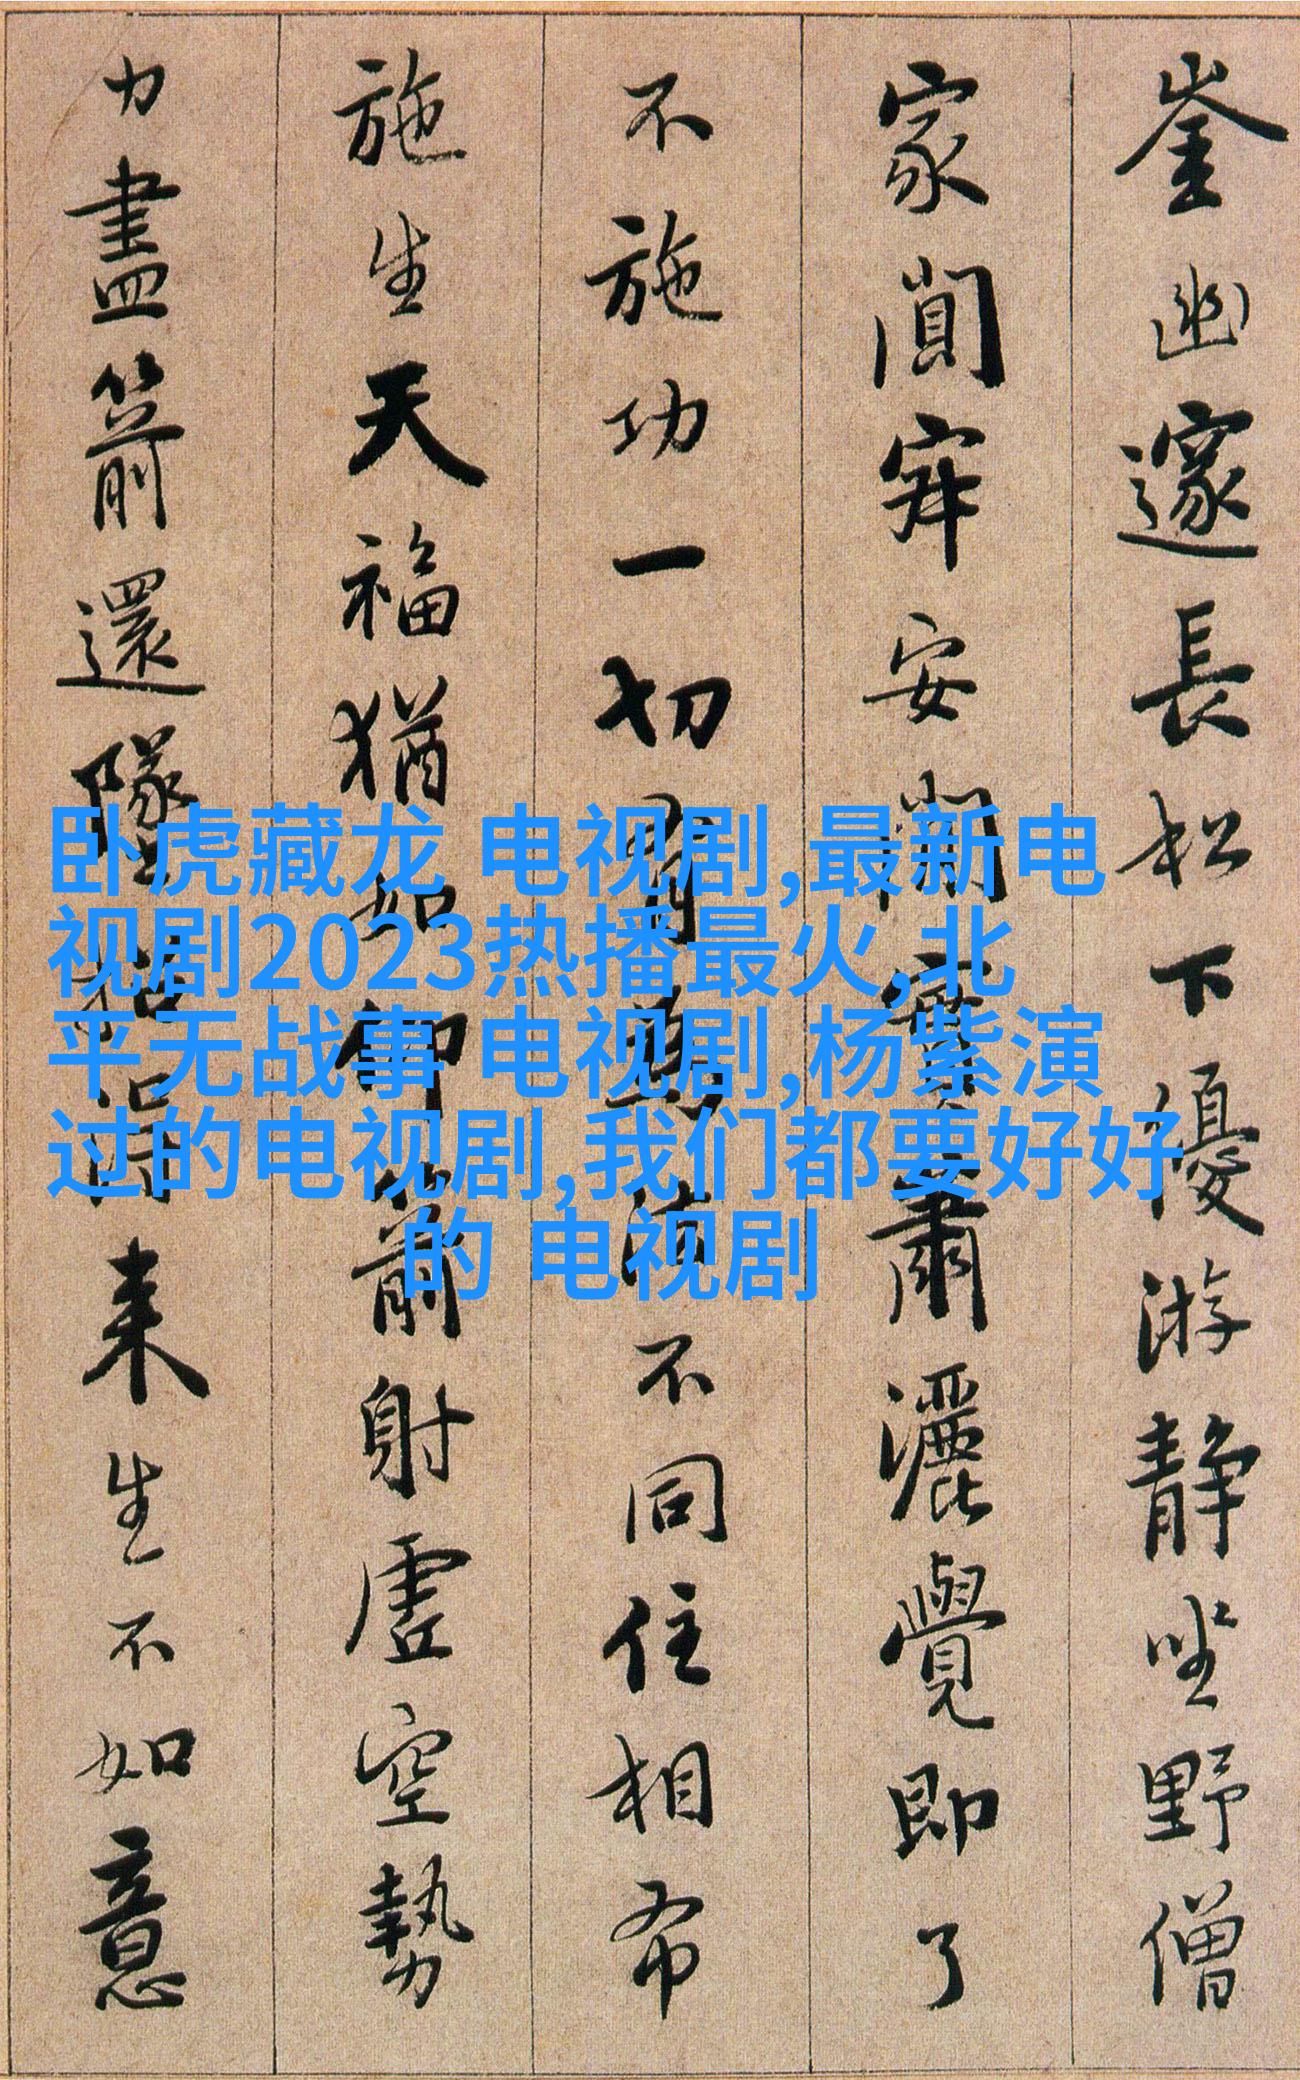 崟幽邃長松下優游静坐野僧
家闃寂安閑實蕭灑覺即了
不施功一切有為法不同住相布
施生天福猶如仰箭射虛空勢
力盡箭還墜招得来生不如意
卧虎藏龙 电视剧,最新电
视剧2023热播最火,北
平无战事 电视剧,杨紫演
过的电视剧,我们都要好好
的 电视剧